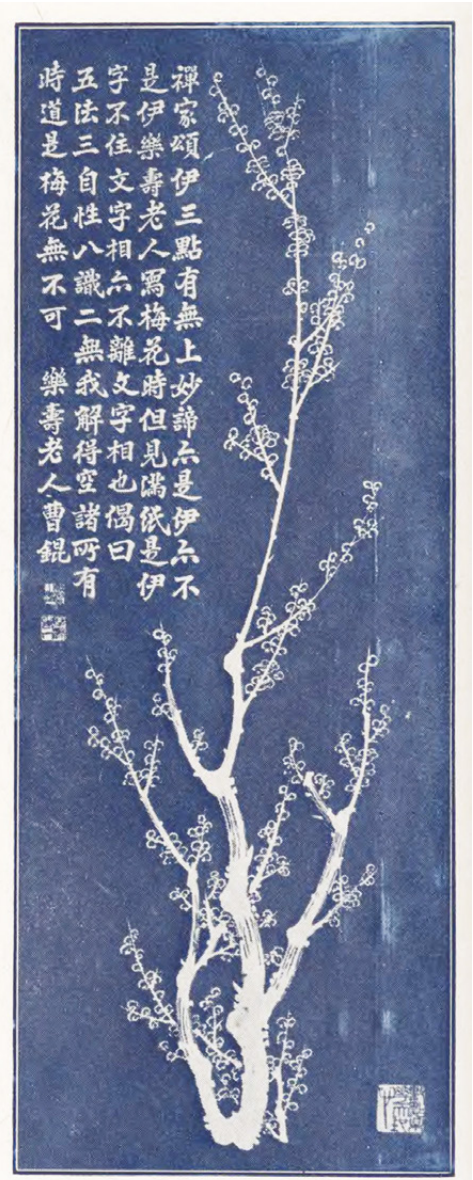 禪家頌伊三點有無上妙諦亦是伊亦不
是伊樂壽老人寫梅花時但見滿紙是伊
字不住文字相亦不離文字相也偈曰
五法三自性八識二無我解得空諸所有
時道是梅花無不可 樂壽老人曹錕